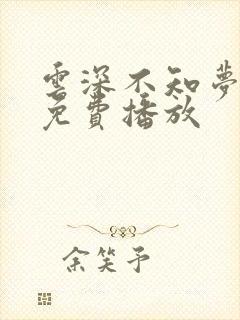 雲深不知夢
免費播放
余笑予